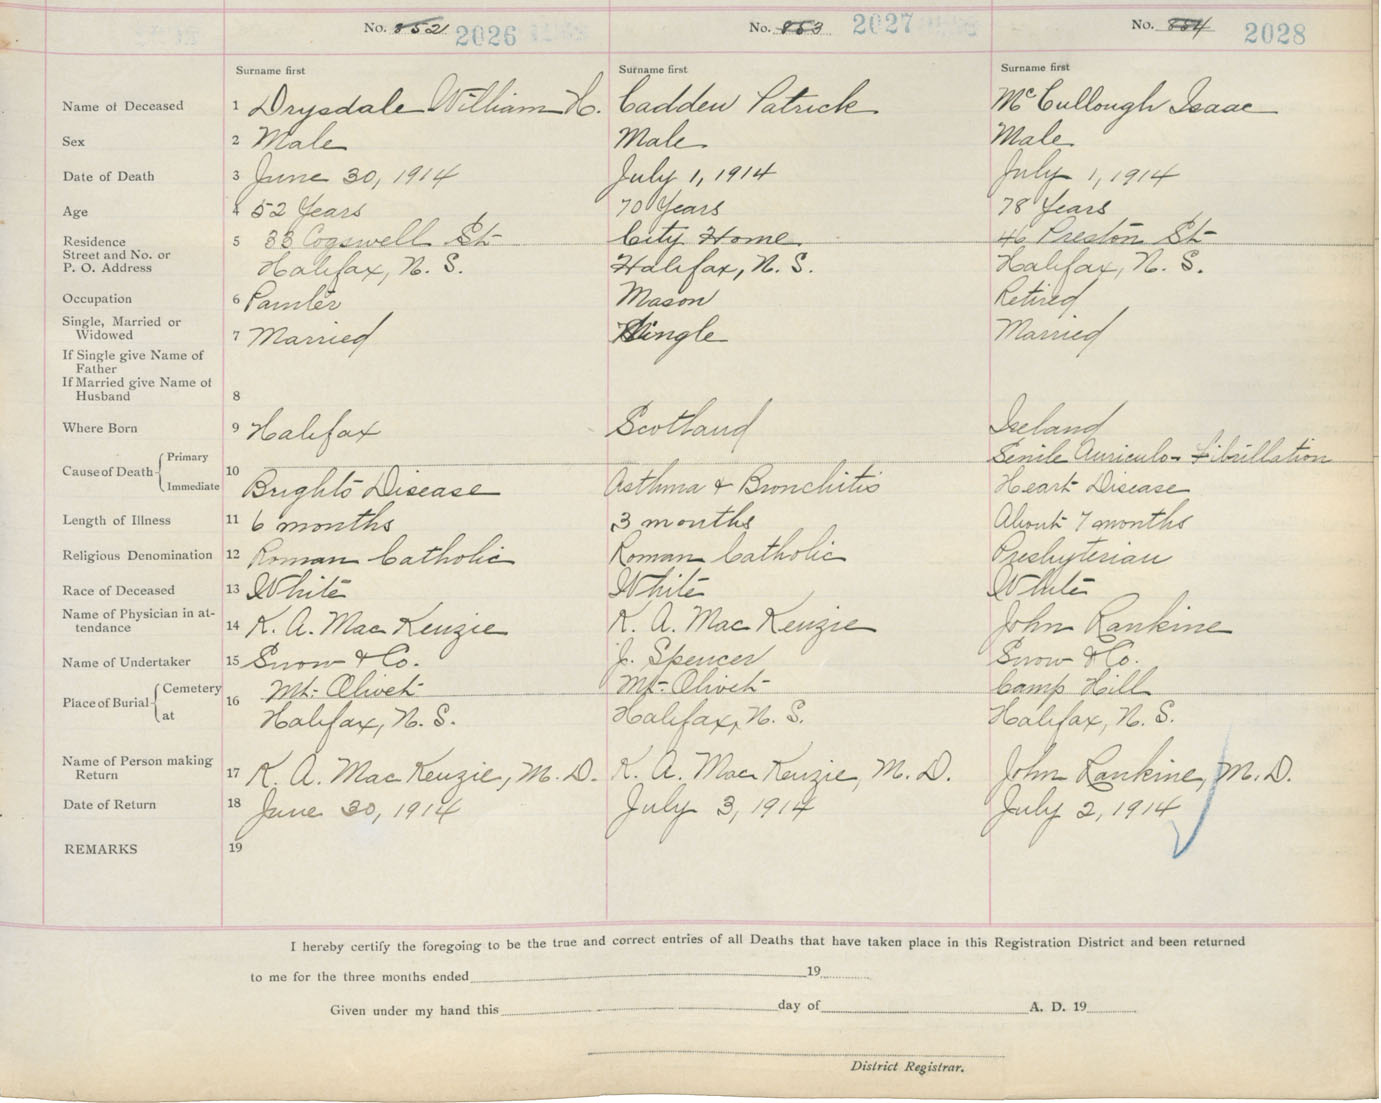 No. 852 2026 No. 853 2027 No. 854 2028
Surname first Surname first Surname first
Name of Deceased 1 Drysdale William H. Cadden Patrick McCullough Isaac
Sex 2 Male Male Male
Date of Death 3 June 30, 1914 July 1, 1914 July 1, 1914
Age 4 52 Years 70 Years 78 Years
Residence 5 33 Cogswell St City Home 46 Preston St
Street and No. or
P. O. Address Halifax, N. S. Halifax, N. S. Halifax, N. S.
Occupation 6 Painter Mason Retired
Single, Married or
Widowed 7 Married Single Married
If Single give Name of
Father
If Married give Name of
Husband 8
Where Born 9 Halifax Scotland Ireland
Cause of Death Primary 10 Senile Auriculo-Fibrillation
Immediate Brights Disease Asthma & Bronchitis Heart Disease
Length of Illness 11 6 months 3 months About 7 months
Religious Denomination 12 Roman Catholic Roman Catholic Presbyterian
Race of Deceased 13 White White White
Name of Physician in at-
tendance 14 K. A. MacKenzie K. A. MacKenzie John Rankine
Name of Undertaker 15 Snow & Co. J. Spencer Snow & Co.
Place of Burial Cemetery 16 Mt. Olivet Mt. Olivet Camp Hill
at Halifax, N. S. Halifax, N. S. Halifax, N. S.
Name of Person making
Return 17 K. A. MacKenzie, M. D. K. A. MacKenzie, M. D. John Rankine, M. D.
Date of Return 18 June 30, 1914 July 3, 1914 July 2, 1914
REMARKS 19
I hereby certify the foregoing to be the true and correct entries of all Deaths that have taken place in this Registration District and been returned
to me for the three months ended 19
Given under my hand this day of A. D. 19
District Registrar.